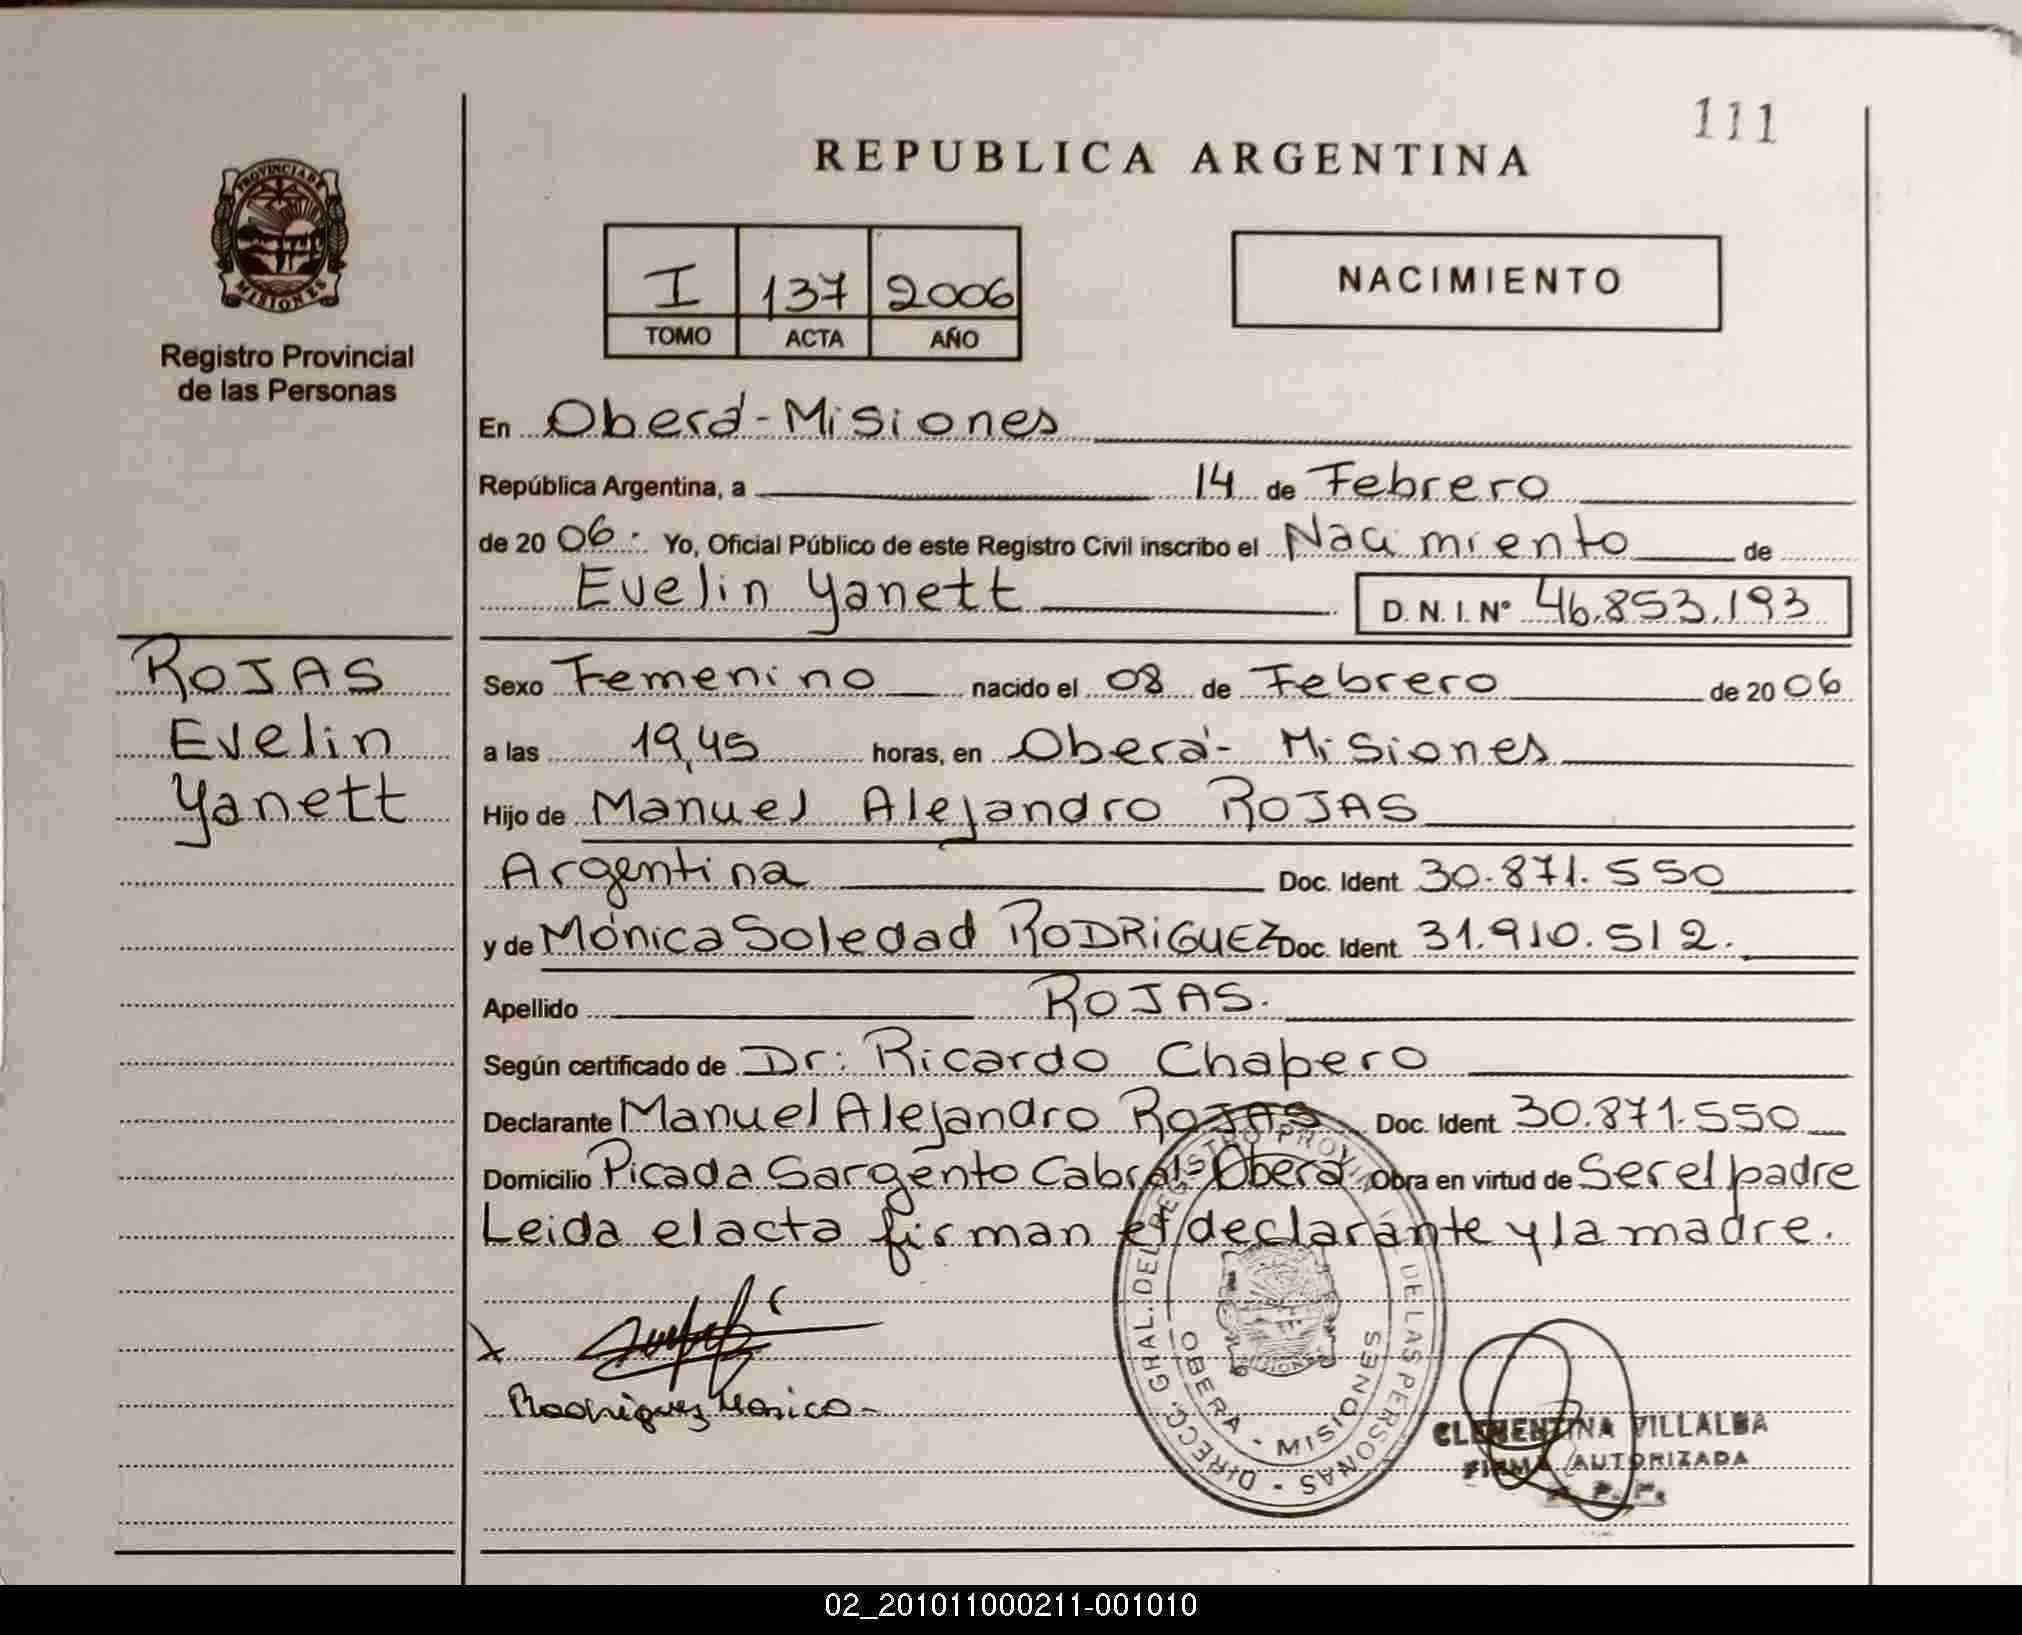 111
REPUBLICA ARGENTINA
PROVINCIA DE
MISIONES
Registro Provincial
de las Personas
I 137 2006
TOMO ACTA AÑO
NACIMIENTO
En Oberá - Misiones
República Argentina, a 14 de Febrero
de 20 06. Yo, Oficial Público de este Registro Civil inscribo el Nacimiento de
Evelin Yanett D. N. I. Nº 46.853.193
ROJAS
Evelin
Yanett
Sexo Femenino nacido el 08 de Febrero de 20 06
a las 19,45 horas, en Oberá - Misiones
Hijo de Manuel Alejandro ROJAS
Argentina Doc. Ident. 30.871.550
y de Mónica Soledad RODRIGUEZ Doc. Ident. 31.910.512.
Apellido ROJAS.
Según certificado de Dr: Ricardo Chapero
Declarante Manuel Alejandro ROJAS Doc. Ident. 30.871.550
Domicilio Picada Sargento Cabral - Oberá Obra en virtud de Ser el padre
Leida el acta firman el declarante y la madre.
Rodriguez Monica
DIRECC. GRAL. DEL REGISTRO PROVINCIAL DE LAS PERSONAS
OBERA - MISIONES
MISIONES
CLEMENTINA VILLALBA
FIRMA AUTORIZADA
02_201011000211-001010